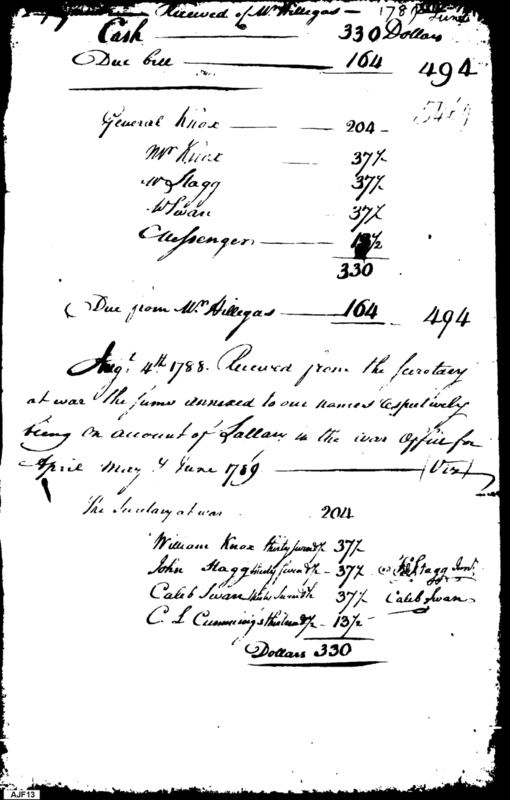 Received of Mr. Hillegas — 178
June
Cash — 330 Dollars
Due bill — 164 494
General Knox — — 204 -
Mr Knox — 37½
Mr Stagg 37½
Mr Swan 37½
Messenger — 13½
330
Due from Mr. Hillegas — 164 494
Augt. 4th 1788. Received from the Secretary
at war the sums annexed to our names respectively
being on account of Sallary in the war office for
April May & June 1789 — (Viz)
The Secretary at war 204
William Knox thirty seven ½ 37½
John Stagg thirty seven ½ - 37½ Jno Stagg Junr.
Caleb Swan thirty seven ½ 37½ Caleb Swan
C. L Cummings thirteen ½ - 13½
Dollars 330
AJF13